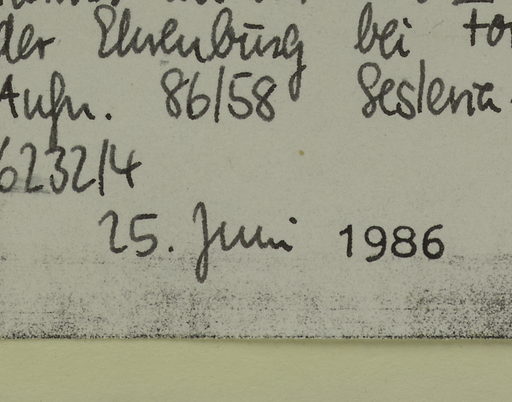 der Ehrenburg bei
Aufn. 86/58 Sesleria
6232/4
25. Juni 1986